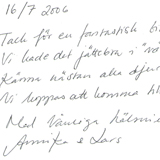 16/7 2006
Tack för en fantastisk
Vi hade det jättebra i
Känns nästan alla djur
Vi hoppas att komma
Med Vänliga hälsnin
Annika & Lars